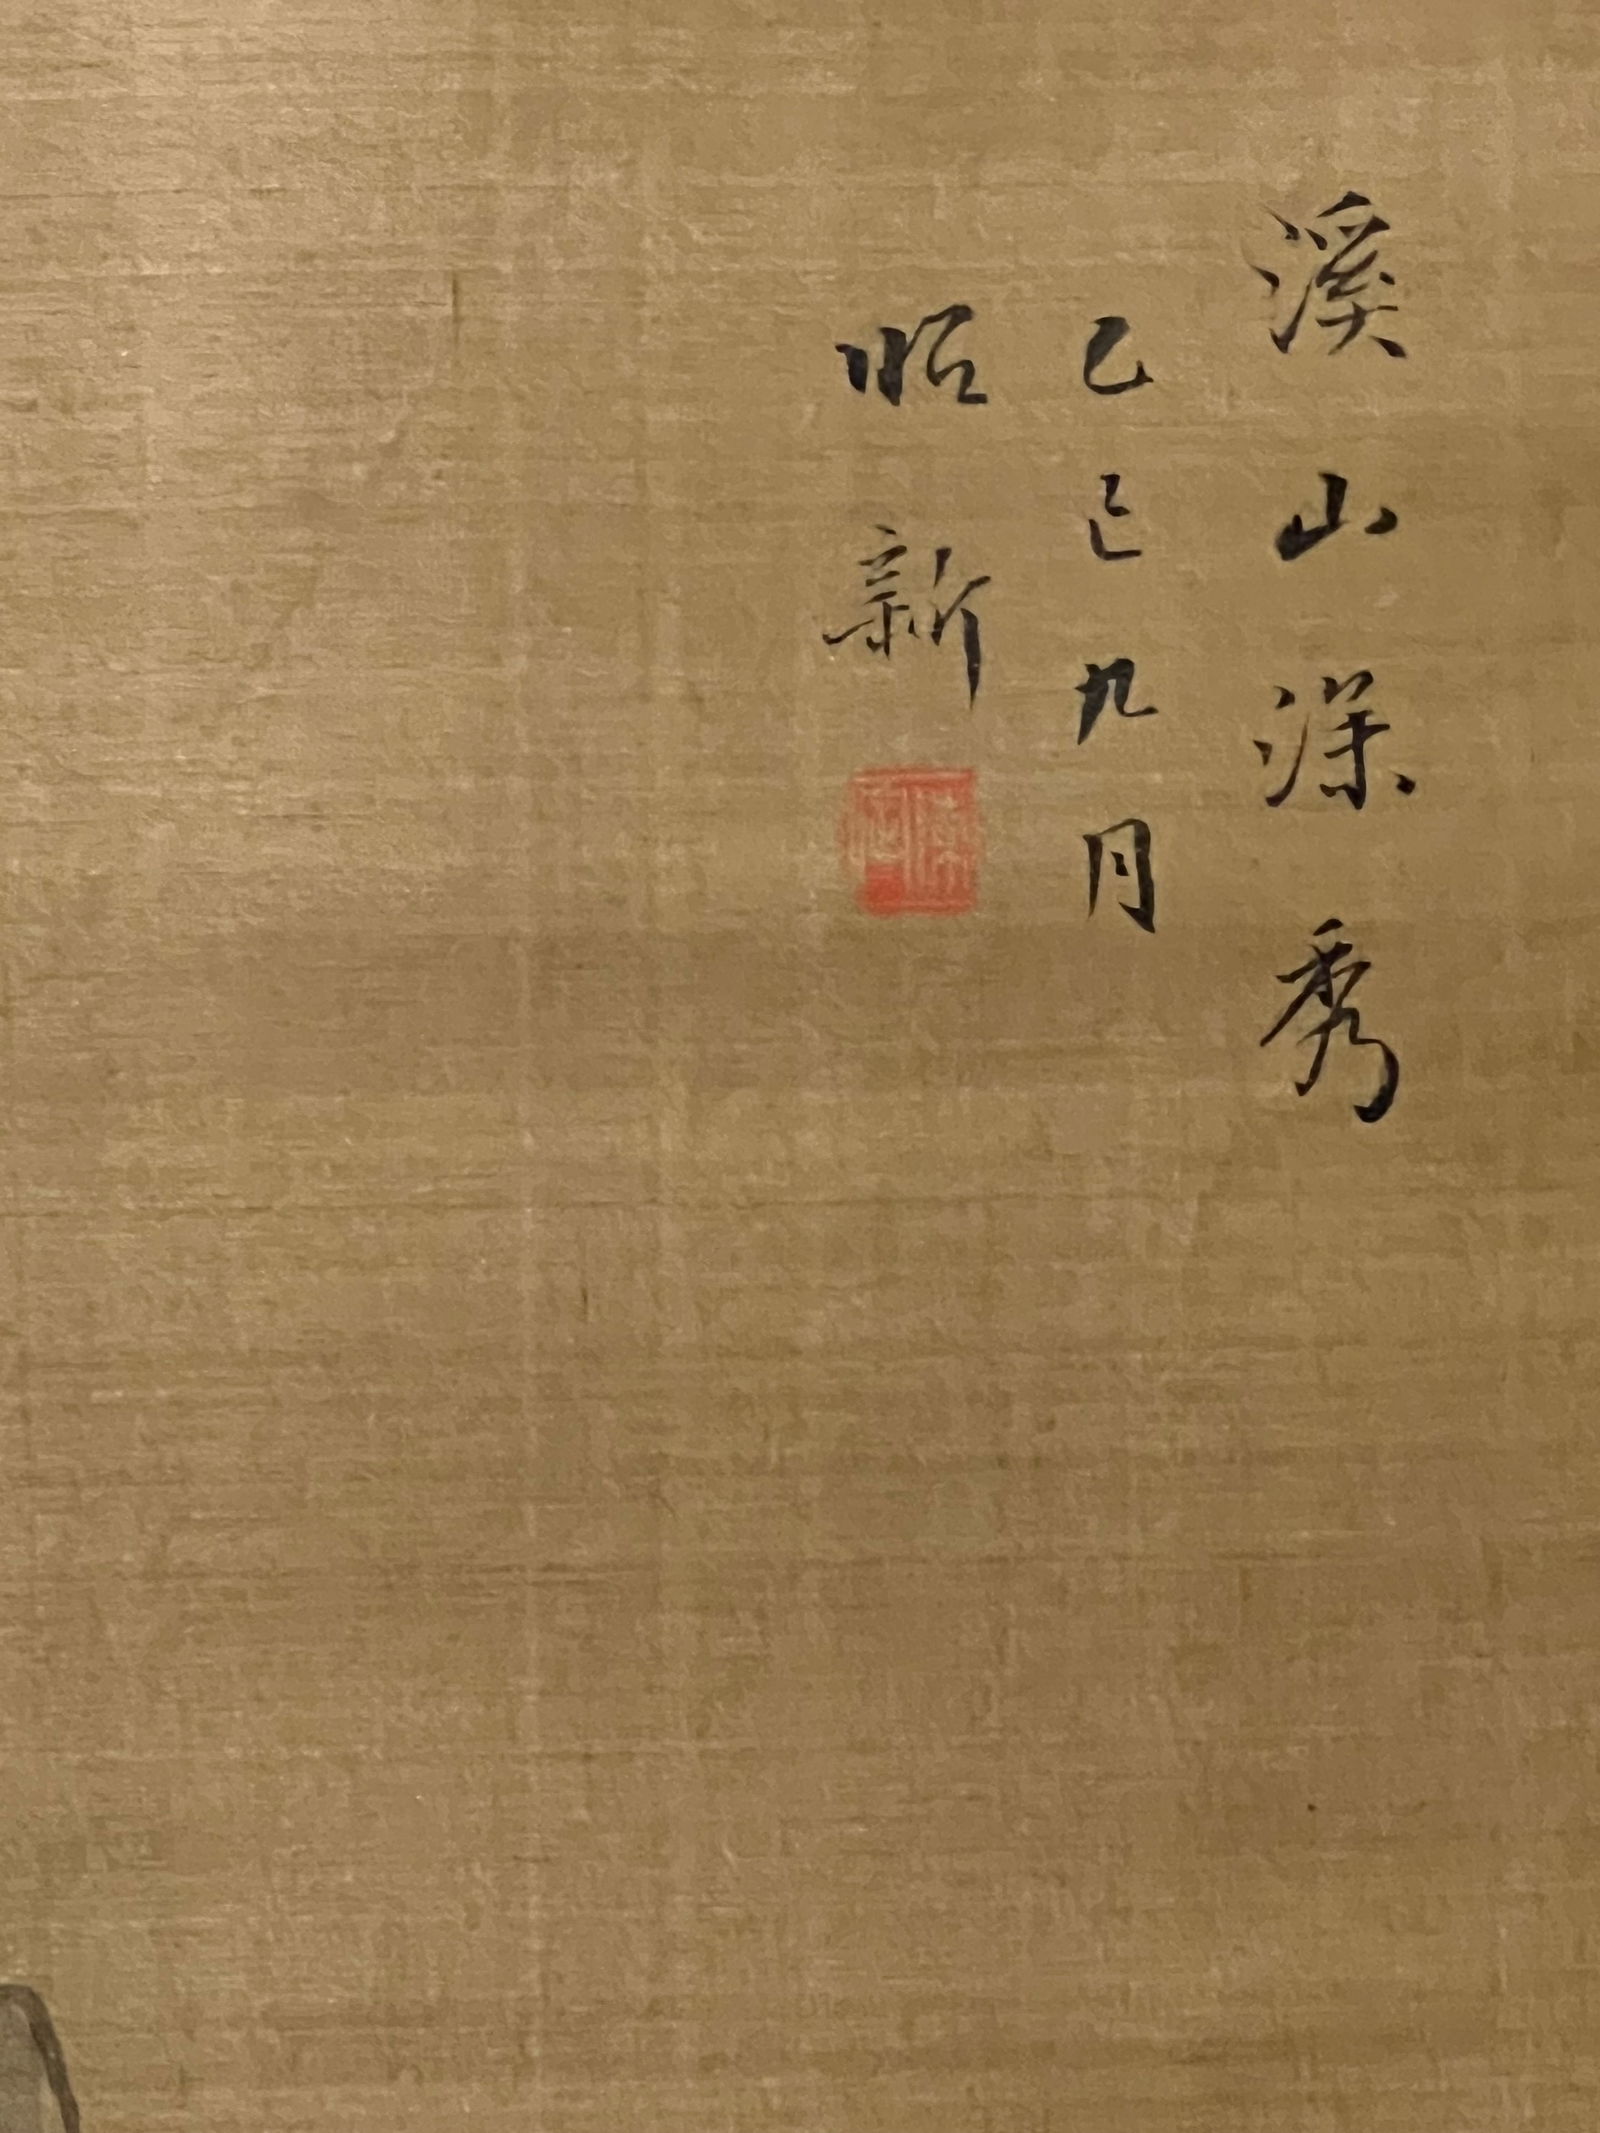 溪山深秀
己巳九月
昭新